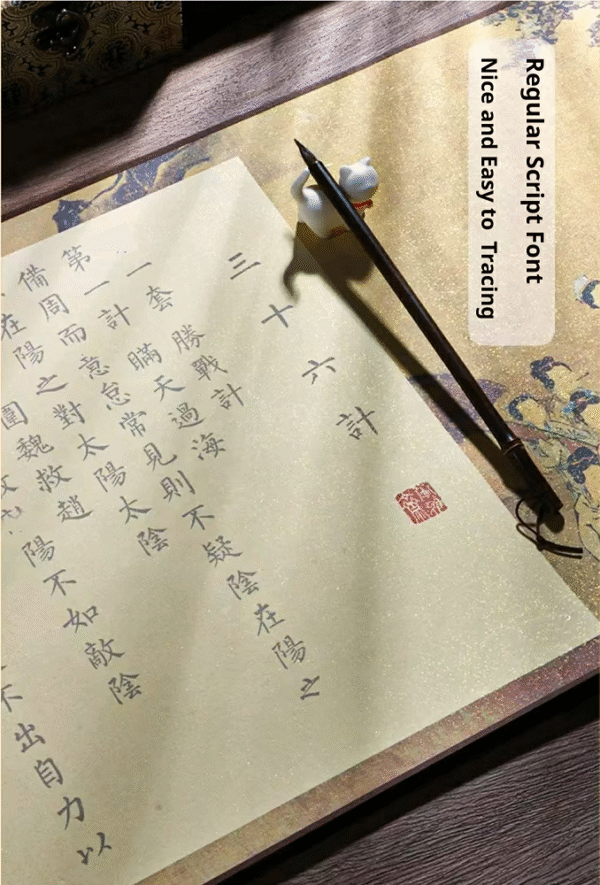 Regular Script Font
Nice and Easy to Tracing
三十六計
一套勝戰計
第一計瞞天過海
備周而意怠常見則不疑陰在陽之
在陽之對太陽太陰
圍魏救趙
陽不如敵陰
不出自力以